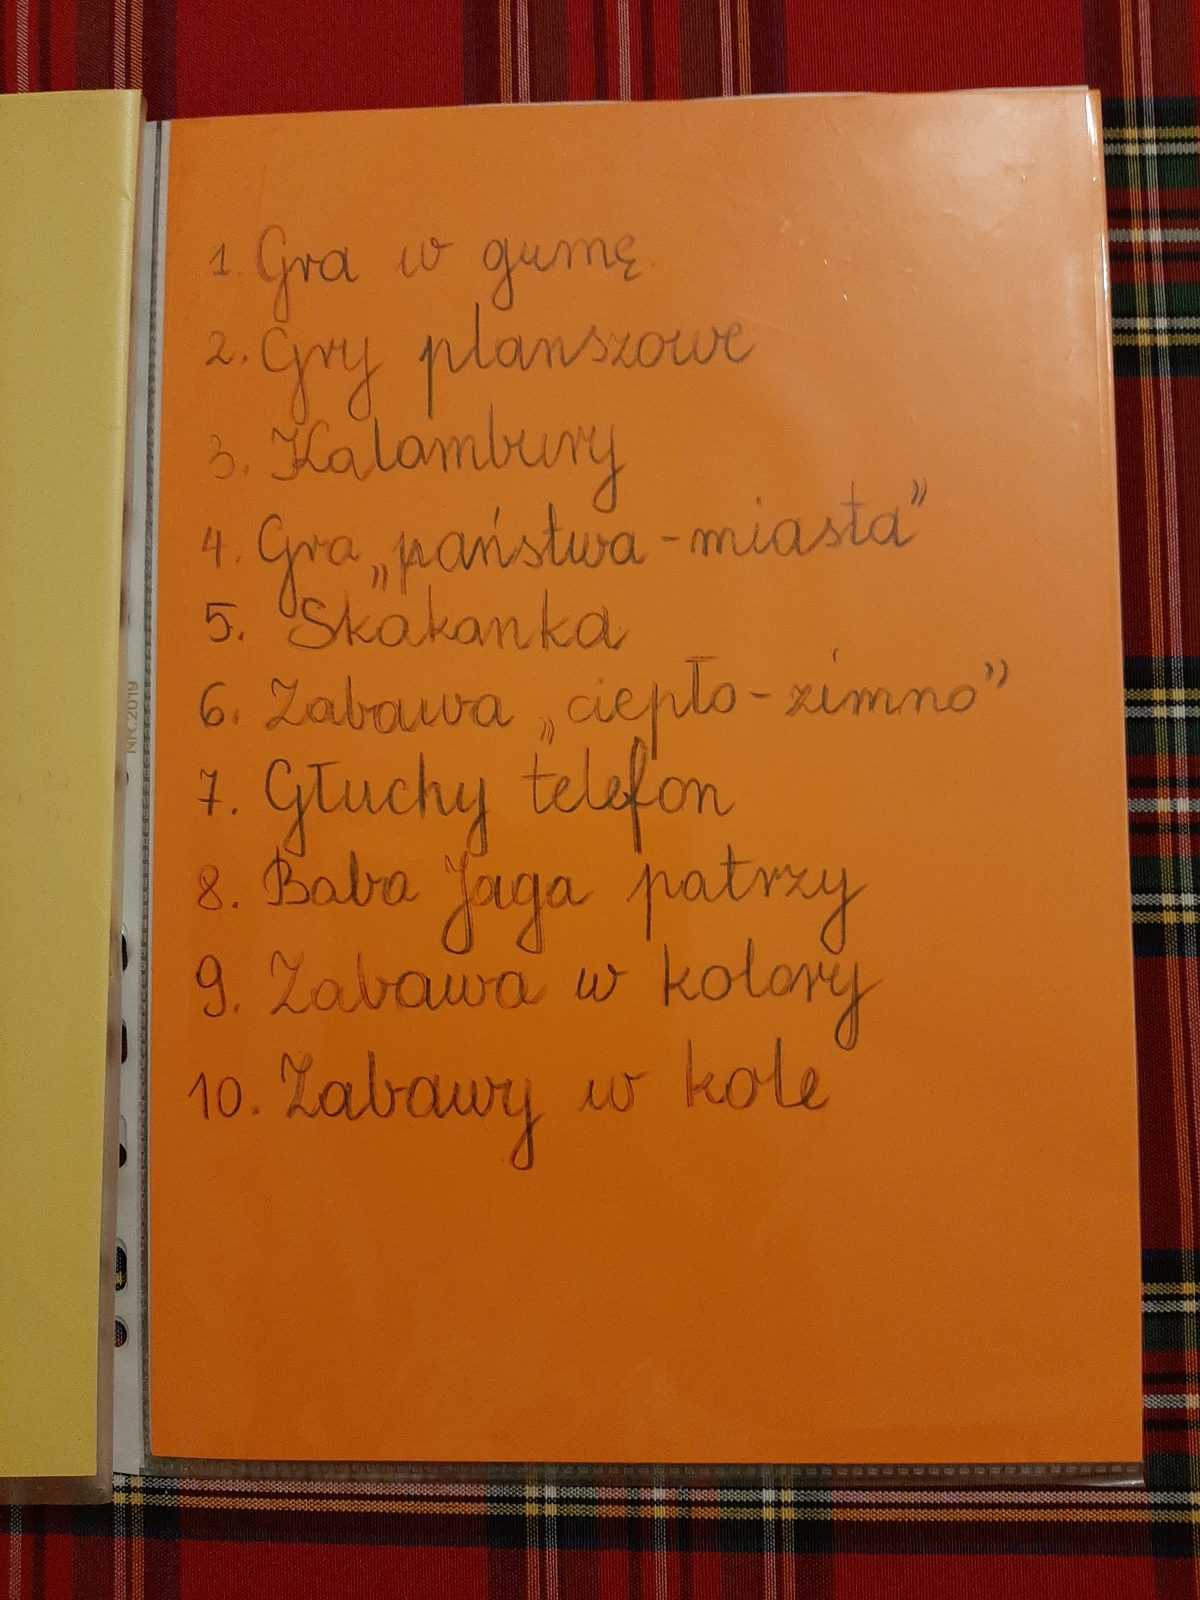 1. Gra w gumę
2. Gry planszowe
3. Kalambury
4. Gra „państwa-miasta”
5. Skakanka
6. Zabawa „ciepło-zimno”
7. Głuchy telefon
8. Baba Jaga patrzy
9. Zabawa w kolory
10. Zabawy w kole
NR.2019